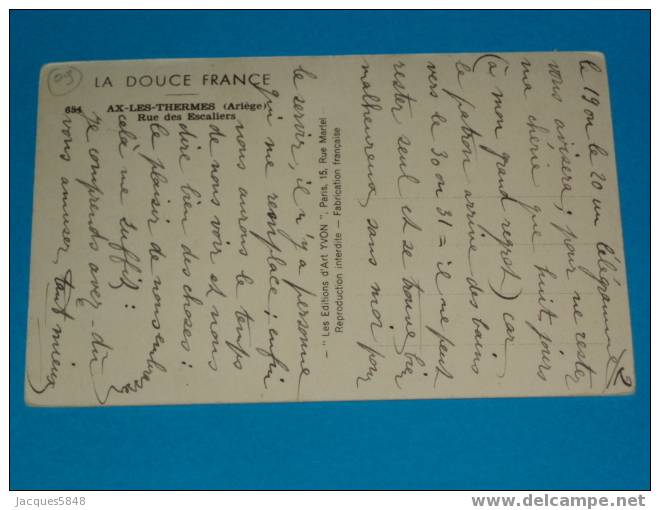 09
LA DOUCE FRANCE
654 AX-LES-THERMES (Ariège)
Rue des Escaliers
- "Les Editions d'Art YVON", Paris, 15, Rue Martel
Reproduction interdite — Fabrication française
2
le 19 ou le 20 un télégramme
vous avisera; pour ne rester
ma chérie que huit jours
(à mon grand regret) car
le patron arrive des bains
vers le 30 ou 31 = il ne peut
rester seul et se trouve bien
malheureux sans moi pour
le servir, il n'y a personne
qui me remplace; enfin
nous aurons le temps
de nous voir et nous
dire bien des choses;
le plaisir de nous embrasser
celà me suffit;
Je comprends avez-dû
vous amuser, tant mieux
Jacques5848
delcampe.net